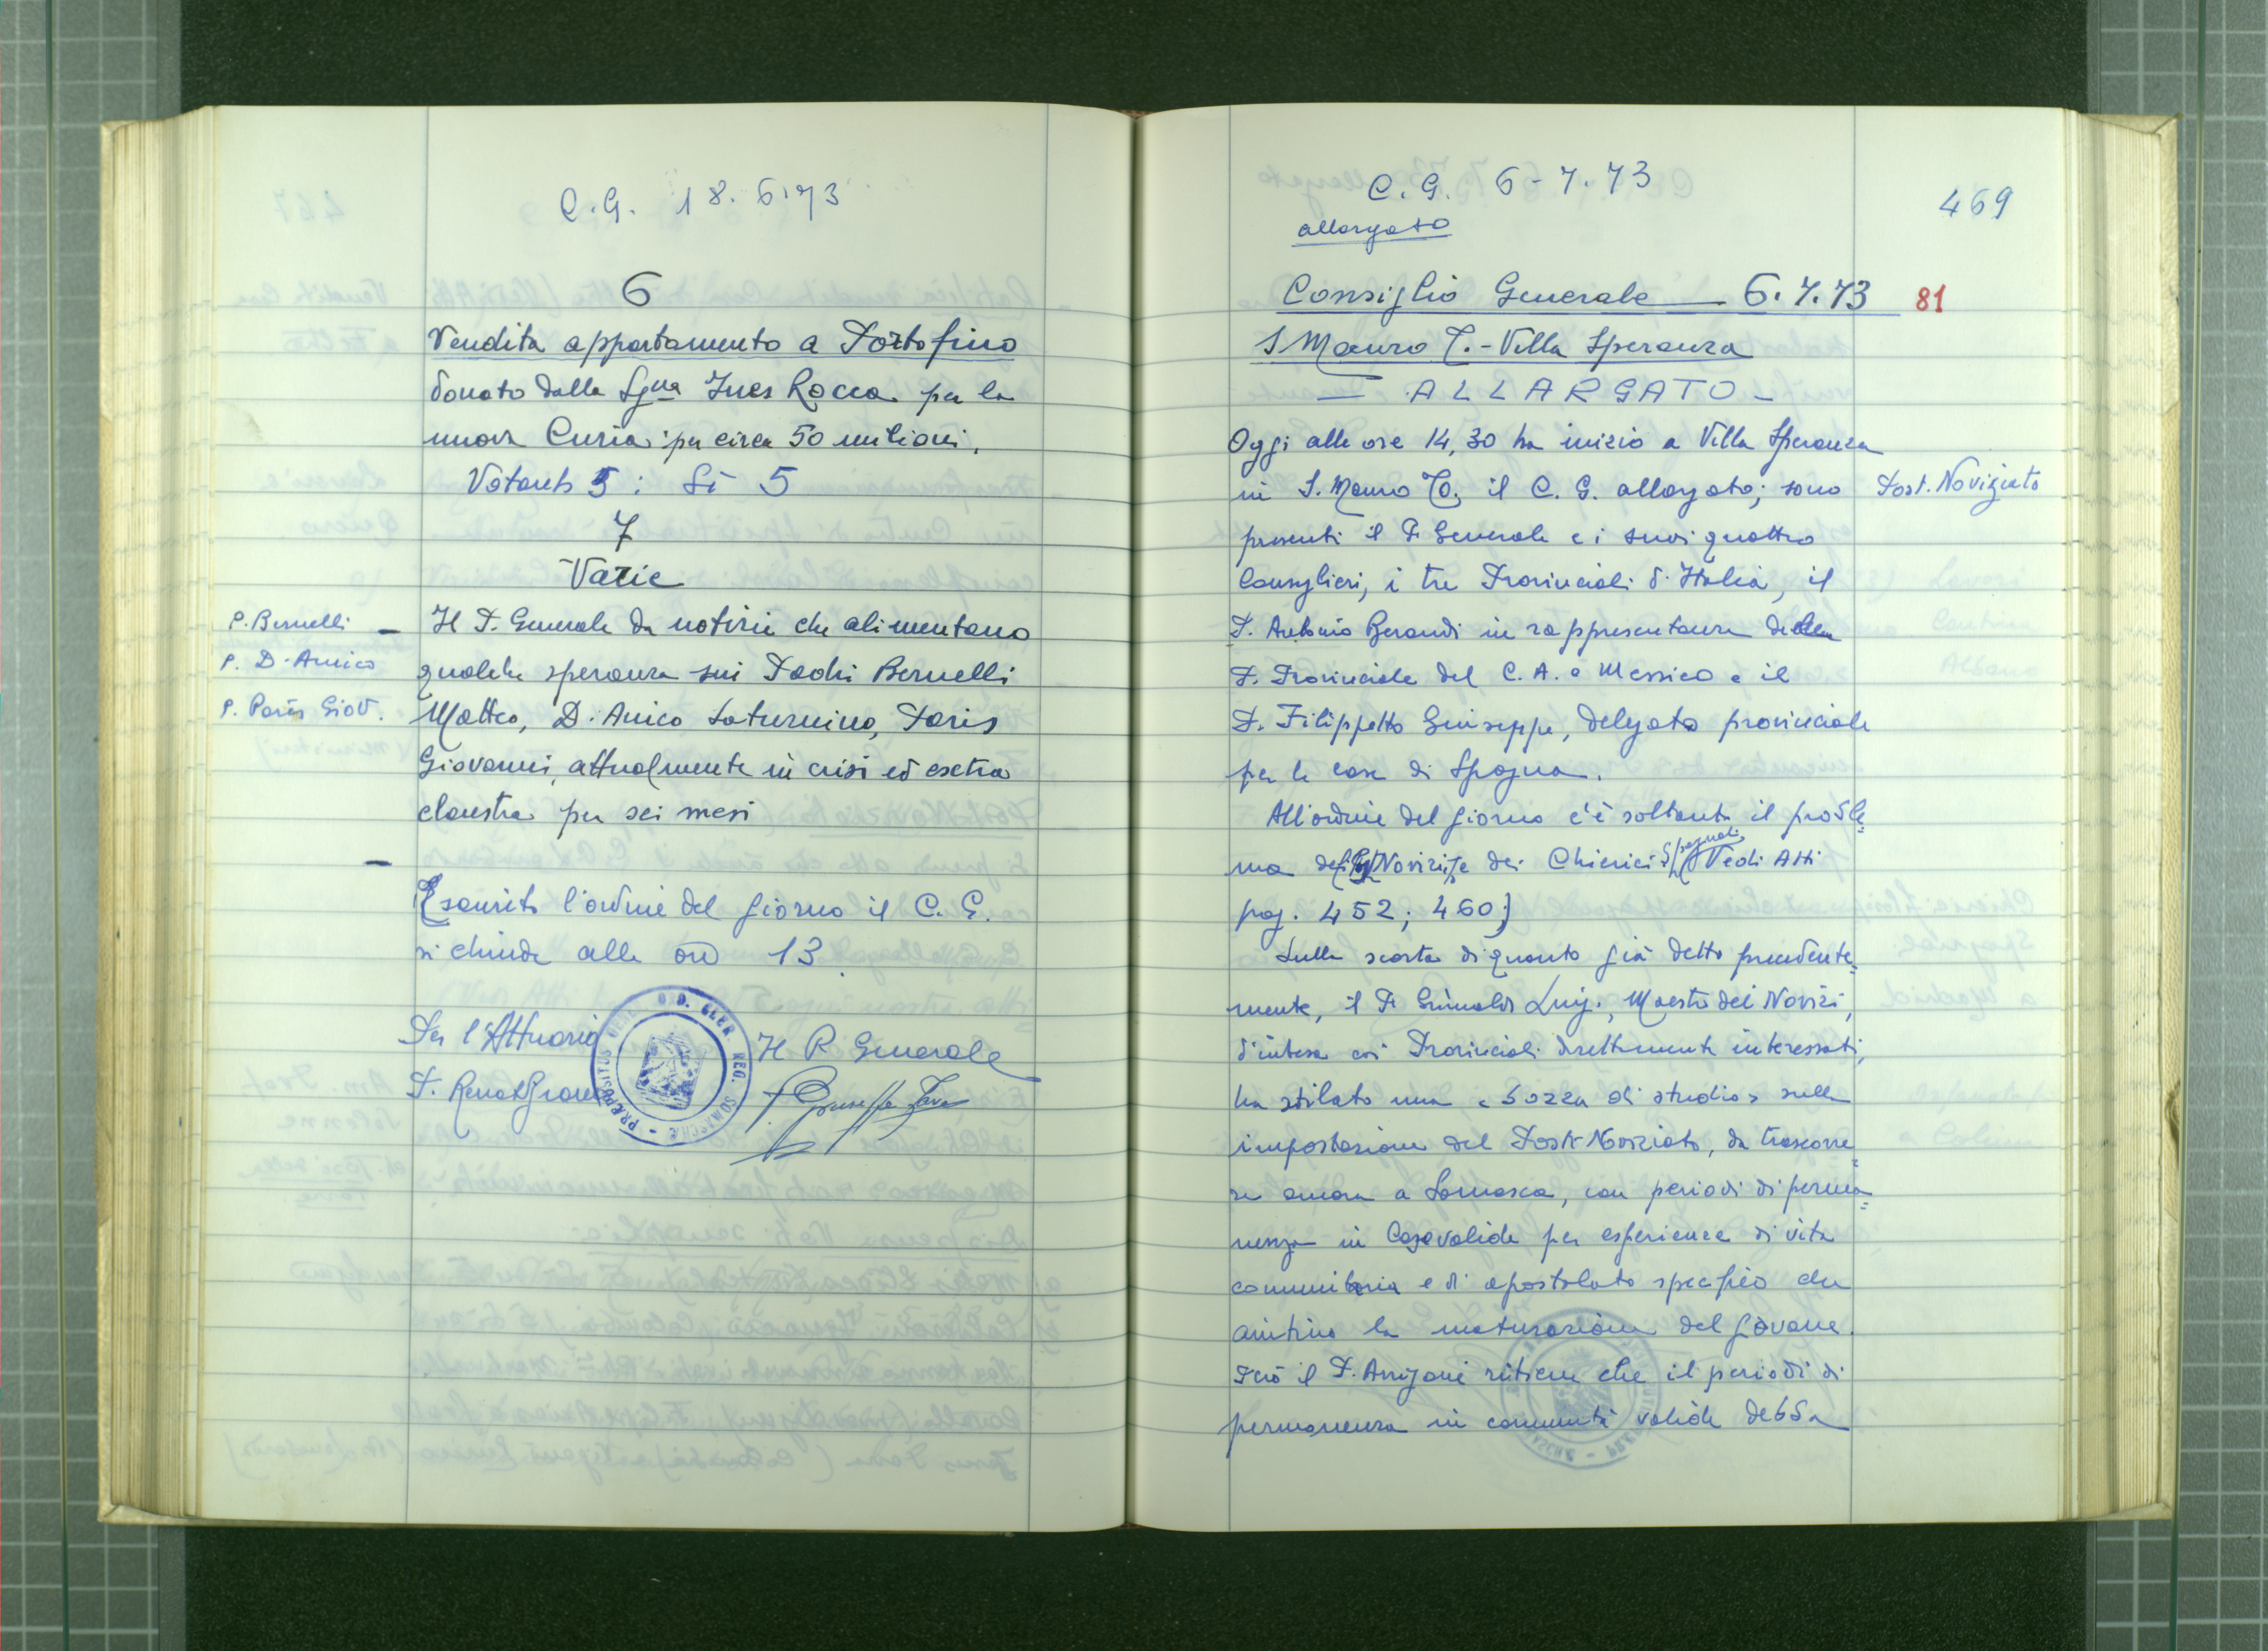 C.G. 18.6.73
6
Vendita appartamento a Portofino
donato dalla Sg.na Ines Rocca per la
nuova Curia: per circa 50 milioni.
Votanti 5: Sì 5
7
Varie
P. Bernelli
P. D'Amico
P. Paris Giov.
– Il P. Generale da notizie che alimentano
qualche speranza sui Padri Bernelli
Matteo, D'Amico Saturnino, Paris
Giovanni, attualmente in crisi ed extra
claustra per sei mesi
–
Esaurito l'ordine del giorno il C. G.
si chiude alle ore 13.
Per l'Attuario
P. Renato
Il P. Generale
P. Giuseppe Fava
PRÆPOSITUS GENE ORD. CLER. REG. SOMASCHÆ
C. G. 6-7.73
allargato
469
Consiglio Generale — 6.7.73
81
S Mauro T. - Villa Speranza
— ALLARGATO —
Oggi alle ore 14,30 ha inizio a Villa Speranza
in S. Mauro TO. il C. G. allargato; sono
Post. Noviziato
presenti il P. Generale e i suoi quattro
Consiglieri, i tre Provinciali d'Italia, il
P. Antonio Berandi in rappresentanza della
P. Provinciale del C. A. e Messico e il
P. Filippetto Giuseppe, delegato provinciale
per le case di Spagna.
All'ordine del giorno c'è soltanto il proble=
ma dei Novizi e dei Chierici Spagnoli (Vedi Atti
pag. 452; 460)
Sulla scorta di quanto già detto precedente=
mente, il P. Grimaldi Luigi, Maestro dei Novizi,
d'intesa coi Provinciali direttamente interessati,
ha stilato una «bozza di studio» sulla
impostazione del Post-Noviziato, da trascorre=
re ancora a Somasca, con periodi di perma=
nenza in Case valide per esperienze di vita
comunitaria e di apostolato specifico che
aiutino la maturazione del giovane.
Però il P. Arrigoni ritiene che il periodo di
permanenza in comunità valide debba